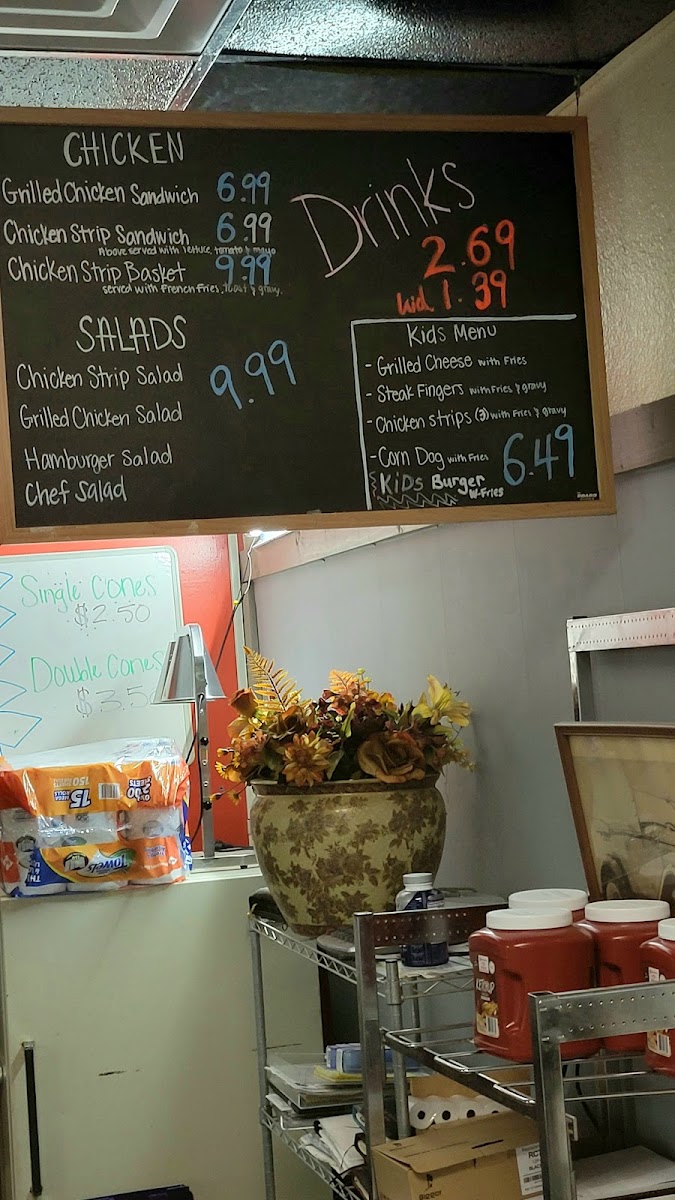 CHICKEN
Grilled Chicken Sandwich 6.99
Chicken Strip Sandwich 6.99
Above served with lettuce, tomato & mayo
Chicken Strip Basket 9.99
served with French Fries, Toast & gravy.
SALADS
Chicken Strip Salad 9.99
Grilled Chicken Salad
Hamburger Salad
Chef Salad
Drinks
2.69
kid 1.39
Kids Menu
- Grilled Cheese with Fries
- Steak Fingers with Fries & gravy
- Chicken Strips (3) with Fries & gravy
- Corn Dog with Fries
KiDs Burger
W-Fries
6.49
Single Cones
$2.50
Double Cones
$3.5
150
15
Towels
KETCHUP